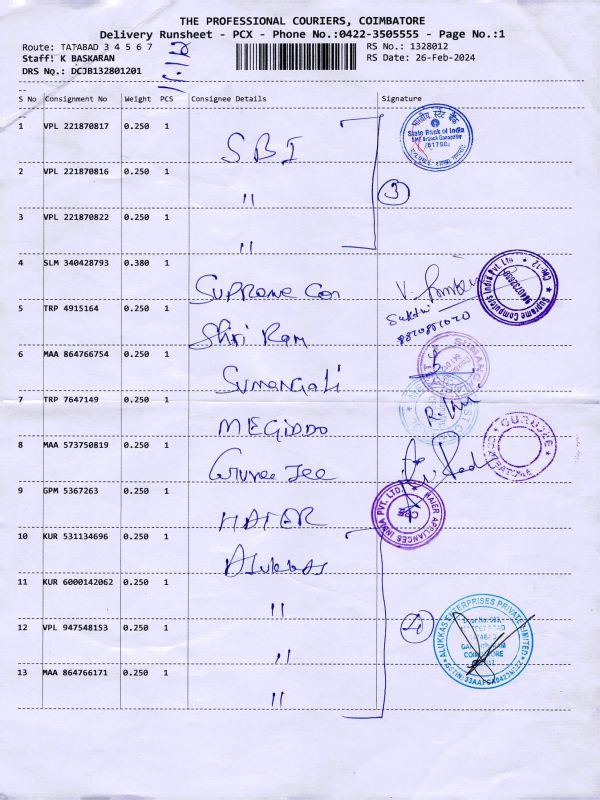 THE PROFESSIONAL COURIERS, COIMBATORE
Delivery Runsheet - PCX - Phone No.:0422-3505555 - Page No.:1
Route: TATABAD 3 4 5 6 7
RS No.: 1328012
Staff: K BASKARAN
RS Date: 26-Feb-2024
DRS No.: DCJB132801201
S No Consignment No Weight PCS Consignee Details Signature
1 VPL 221870817 0.250 1 SBI
State Bank of India
2 VPL 221870816 0.250 1 "
3
3 VPL 221870822 0.250 1 "
4 SLM 340428793 0.380 1 Supreme Con
Supreme Computers India Pvt. Ltd
5 TRP 4915164 0.250 1 Shri Ram
Sakthi
8820882020
6 MAA 864766754 0.250 1 Sumangali
7 TRP 7647149 0.250 1 MEGIDDO
8 MAA 573750819 0.250 1 Gurujee
GURUJEE
9 GPM 5367263 0.250 1 HAIER
HAIER APPLIANCES INDIA PVT. LTD.
CBE
10 KUR 531134696 0.250 1 Alukkas
11 KUR 6000142062 0.250 1 "
12 VPL 947548153 0.250 1 "
4
ALUKKAS ENTERPRISES PRIVATE LIMITED
COIMBATORE
13 MAA 864766171 0.250 1 "